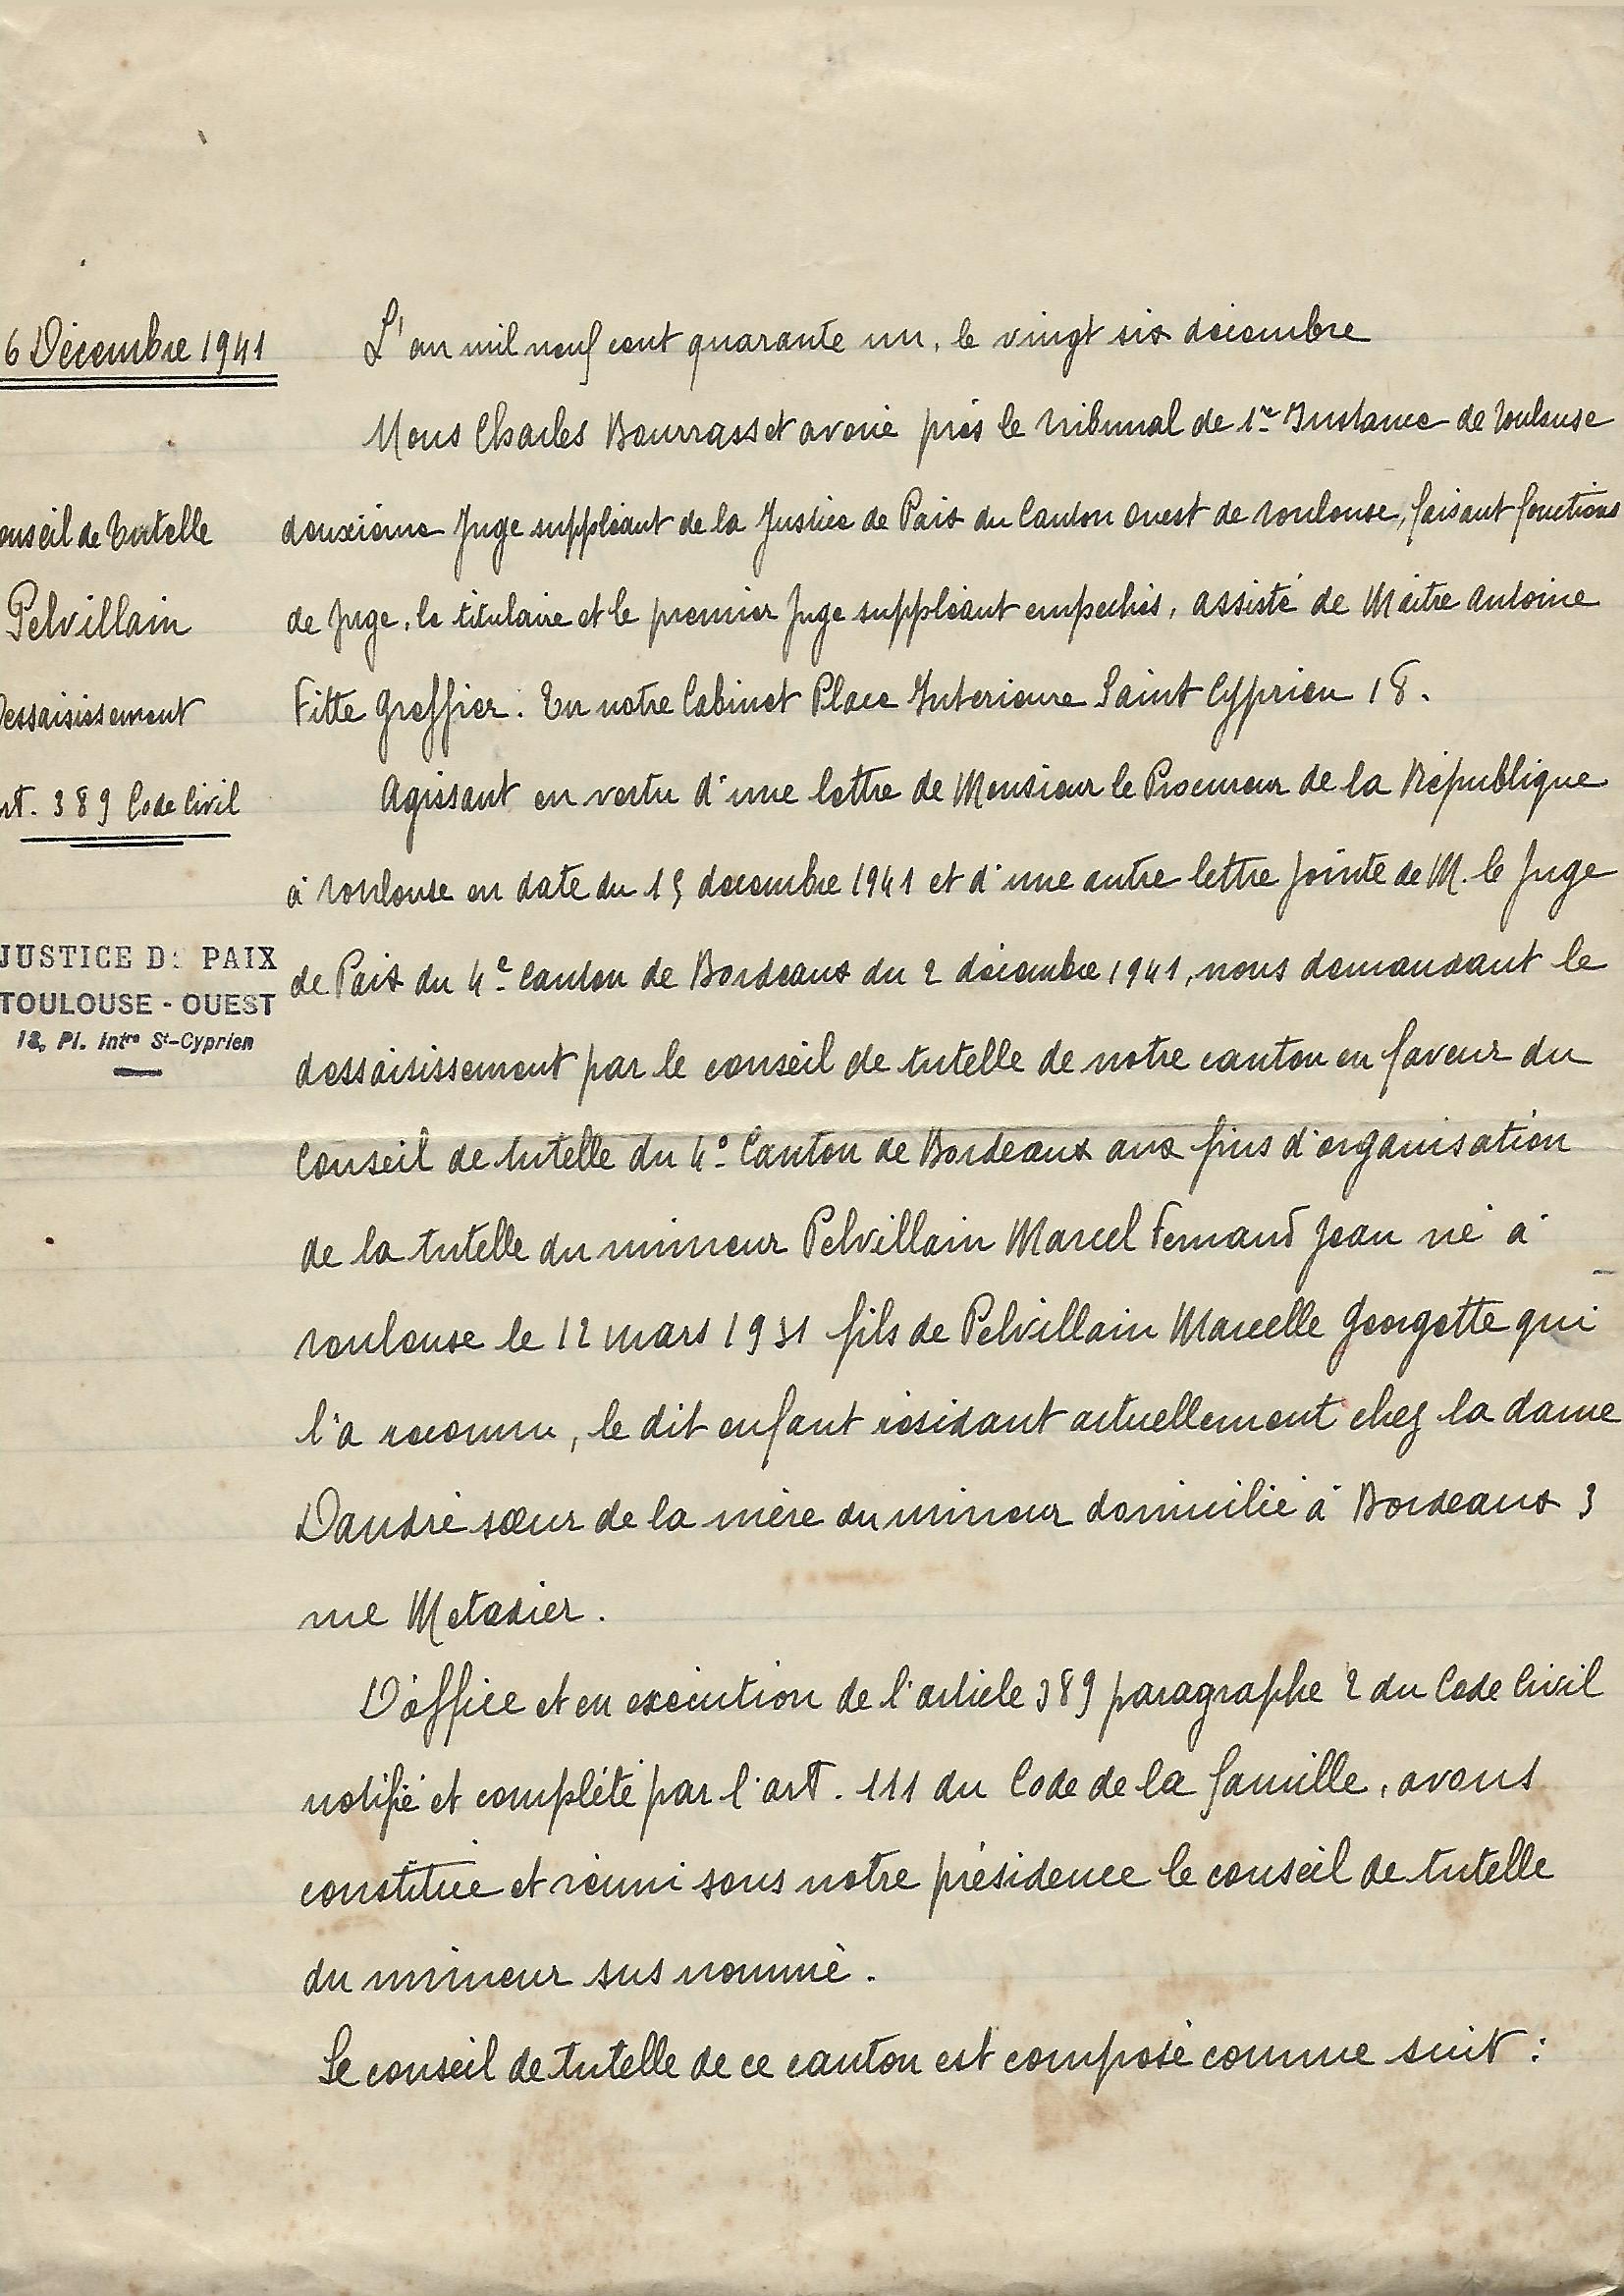 6 Décembre 1941
onseil de Tutelle
Pelvillain
Dessaisissement
rt. 389 Code Civil
JUSTICE D PAIX
TOULOUSE - OUEST
18, Pl. Intre St-Cyprien
L'an mil neuf cent quarante un, le vingt six décembre
Nous Charles Bourrasset avoué près le Tribunal de 1re Instance de Toulouse
deuxième Juge suppléant de la Justice de Paix du Canton Ouest de Toulouse, faisant fonctions
de Juge, le titulaire et le premier Juge suppléant empechés, assisté de Maitre Antoine
Fitte Greffier. En notre Cabinet Place Interieure Saint Cyprien 18.
Agissant en vertu d'une lettre de Monsieur le Procureur de la République
à Toulouse en date du 15 décembre 1941 et d'une autre lettre jointe de M. le Juge
de Paix du 4e Canton de Bordeaux du 2 décembre 1941, nous demandant le
dessaisissement par le conseil de tutelle de notre canton en faveur du
Conseil de tutelle du 4e Canton de Bordeaux aux fins d'organisation
de la tutelle du mineur Pelvillain Marcel Fernand Jean né à
Toulouse le 12 mars 1931 fils de Pelvillain Marcelle Georgette qui
l'a reconnu, le dit enfant résidant actuellement chez la dame
Dandré sœur de la mère du mineur domicilié à Bordeaux 3
rue Metadier.
D'office et en exécution de l'article 389 paragraphe 2 du Code Civil
notifié et complété par l'art. 111 du Code de la famille, avons
constitué et réuni sous notre présidence le conseil de tutelle
du mineur sus nommé.
Le conseil de tutelle de ce canton est composé comme suit :